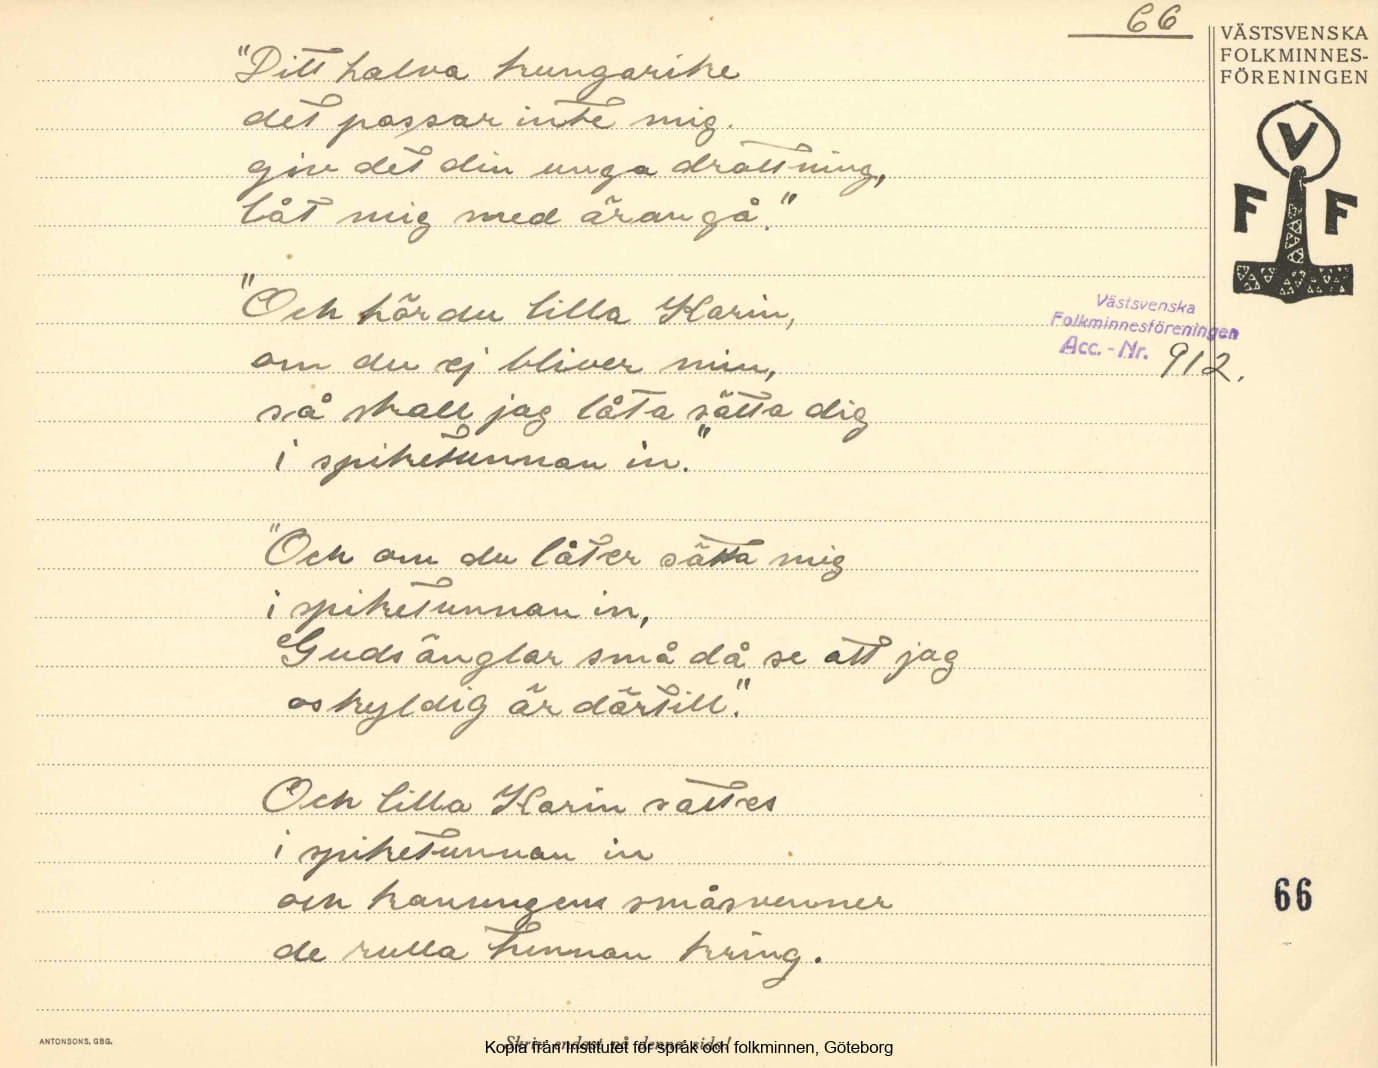 66
VÄSTSVENSKA
FOLKMINNES-
FÖRENINGEN
V
F F
"Ditt halva kungarike
det passar inte mig.
giv det din unga drottning,
låt mig med äran gå."
"Och hör du lilla Karin,
om du ej bliver min,
så skall jag låta sätta dig
i spiketunnan in."
Västsvenska
Folkminnesföreningen
Acc.-Nr. 912.
"Och om du låter sätta mig
i spiketunnan in,
Guds änglar små då se att jag
oskyldig är därtill."
Och lilla Karin sattes
i spiketunnan in
och konungens småsvenner
de rulla hennan kring.
66
ANTONSONS, GBG.
Skriv endast på denna sida!
Kopia från Institutet för språk och folkminnen, Göteborg